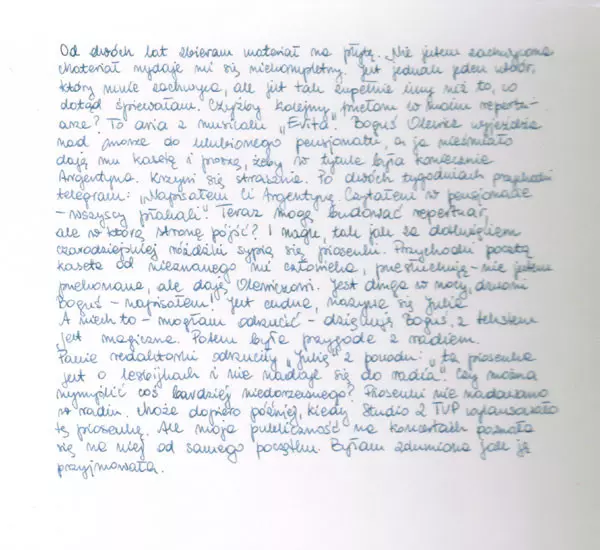 Od dwóch lat zbieram materiał na płytę. Nie jestem zachwycona
Materiał wydaje mi się niekompletny. Jest jednak jeden utwór,
który mnie zachwyca, ale jest tak zupełnie inny niż to, co
dotąd śpiewałam. Czyżby kolejny przełom w moim repertu-
arze? To aria z musicalu "Evita". Boguś Olewicz wyjeżdża
nad morze do ulubionego pensjonatu, a ja nieśmiało
daję mu kasetę i proszę, żeby w tytule była koniecznie
Argentyna. Krzywi się strasznie. Po dwóch tygodniach przychodzi
telegram: "Napisałem Ci Argentynę. Czytałem w pensjonacie
- wszyscy płakali". Teraz mogę budować repertuar,
ale w którą stronę pójść? I nagle, tak jak za dotknięciem
czarodziejskiej różdżki sypią się piosenki. Przychodzi pocztą
kaseta od nieznanego mi człowieka, przesłuchuję - nie jestem
przekonana, ale daję Olewiczowi. Jest druga w nocy, dzwoni
Boguś - napisałem! Jest cudna, nazywa się Julia
A niech to - mogłam odrzucić - dziękuję Boguś, z tekstem
jest magiczna. Potem była przygoda z radiem.
Panie redaktorki odrzuciły "Julię" z powodu: "ta piosenka
jest o lesbijkach i nie nadaje się do radia". Czy można
wymyślić coś bardziej niedorzecznego? Piosenki nie nadawano
w radiu. Może dopiero później, kiedy Studio 2 TVP wylansowało
tę piosenkę. Ale moja publiczność na koncertach poznała
się na niej od samego początku. Byłam zdumiona jak ją
przyjmowała.